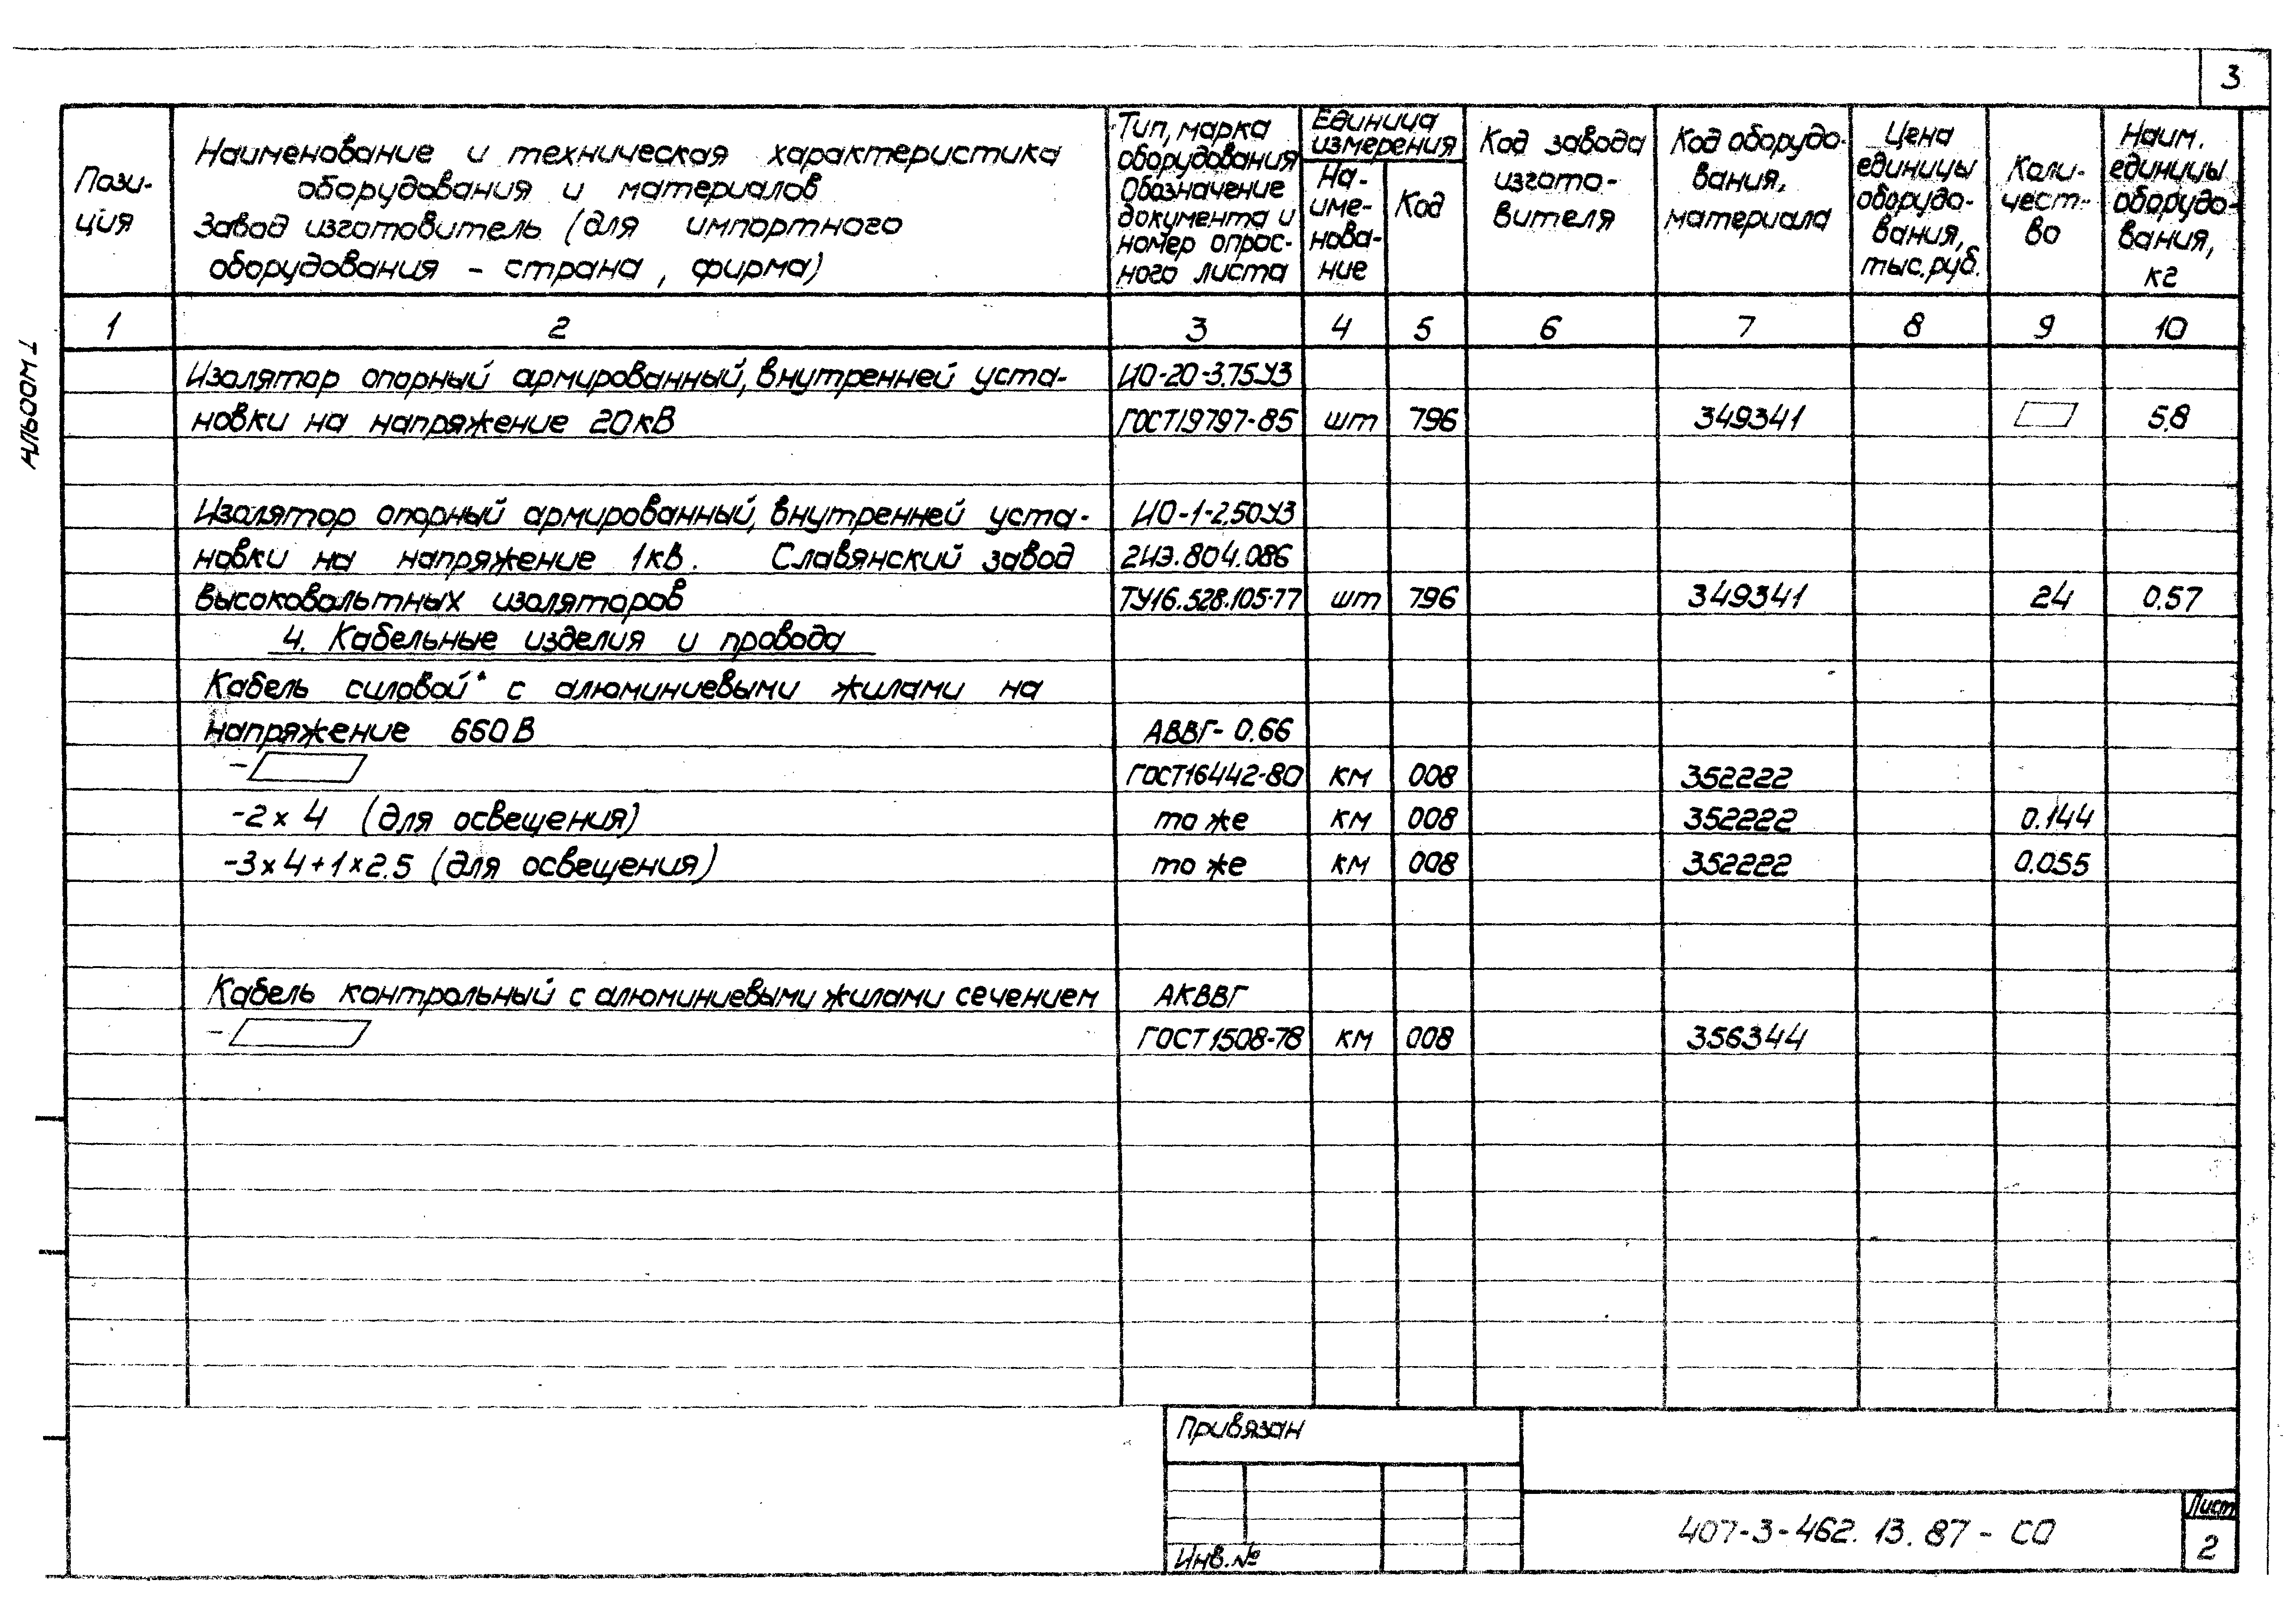 3
Альбом I
Пози-
ция
Наименование и техническая характеристика
оборудования и материалов
Завод изготовитель (для импортного
оборудования - страна, фирма)
Тип, марка
оборудования
Обозначение
документа и
номер опрос-
ного листа
Единица
измерения
На-
име-
нова-
ние
Код
Код завода
изгото-
вителя
Код оборудо-
вания,
материала
Цена
единицы
оборудо-
вания,
тыс. руб.
Коли-
чест-
во
Наим.
единицы
оборудо-
вания,
кг
1 2 3 4 5 6 7 8 9 10
Изолятор опорный армированный, внутренней уста- ИО-20-3.75У3
новки на напряжение 20кВ ГОСТ19797-85 шт 796 349341 5.8
Изолятор опорный армированный, внутренней уста- ИО-1-2.50У3
новки на напряжение 1кВ. Славянский завод 2ИЭ.804.086
высоковольтных изоляторов ТУ16.528.105-77 шт 796 349341 24 0.57
4. Кабельные изделия и провода
Кабель силовой* с алюминиевыми жилами на
напряжение 660В АВВГ-0.66
- ГОСТ16442-80 км 008 352222
-2х4 (для освещения) то же км 008 352222 0.144
-3х4+1х2.5 (для освещения) то же км 008 352222 0.055
Кабель контрольный с алюминиевыми жилами сечением АКВВГ
- ГОСТ1508-78 км 008 356344
Привязан
Инв.№
407-3-462.13.87-СО
Лист
2